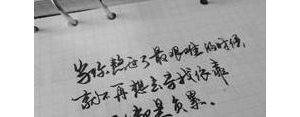 当你熬过了最艰难的时候，
就不再想去寻找依靠
都是负累。